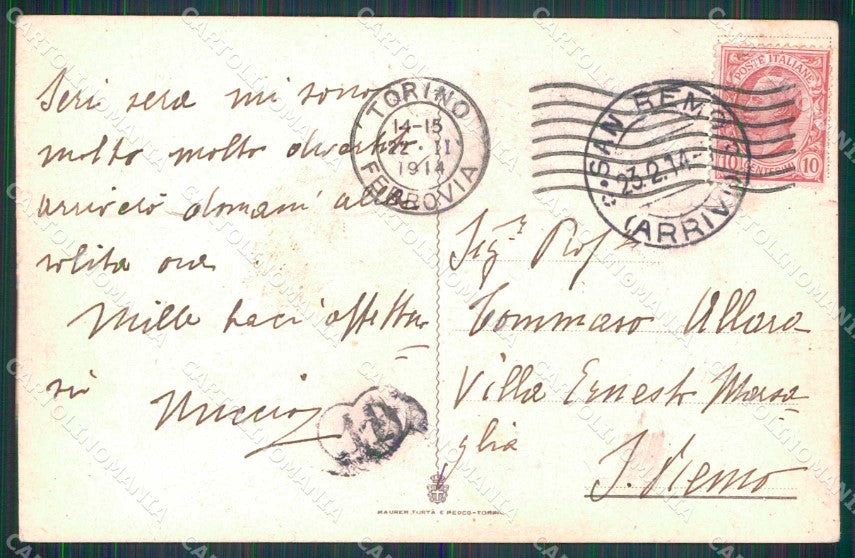 Ieri sera mi sono
molto molto divertita
arriverò domani alla
solita ora
Mille baci affettuo-
si
Nuccia
TORINO
14-15
22 · II
1914
FERROVIA
SAN REMO
23.2.14
(ARRIVI
POSTE ITALIANE
10 CENTESIMI 10
Sig.r Prof.
Tommaso Allara
Villa Ernesta Marsa-
glia
S. Remo
MAURER, TURTÀ E PEOCO-TORINO
CARTOLINOMANIA